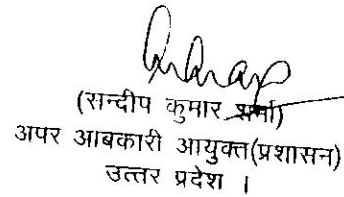 (सन्दीप कुमार शर्मा)
अपर आबकारी आयुक्त(प्रशासन)
उत्तर प्रदेश ।